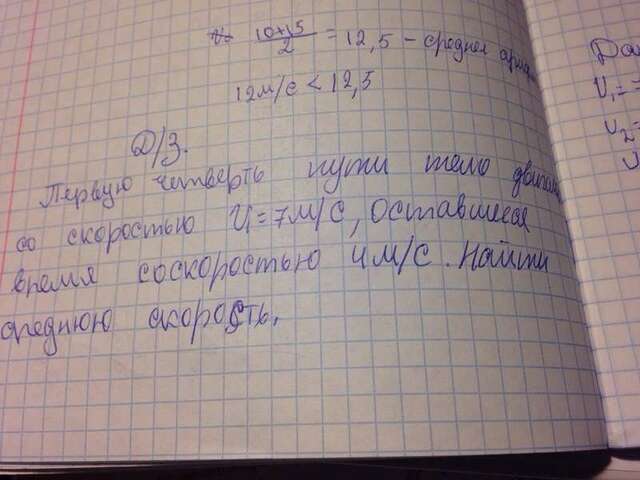 10+15 / 2 = 12,5 - среднее
12м/с < 12,5
Д/З.
Первую четверть пути тело
со скоростью V₁=7м/с, оставшееся
время соскоростью 4м/с. Найти
среднюю скорость.
V₁=
V₂=